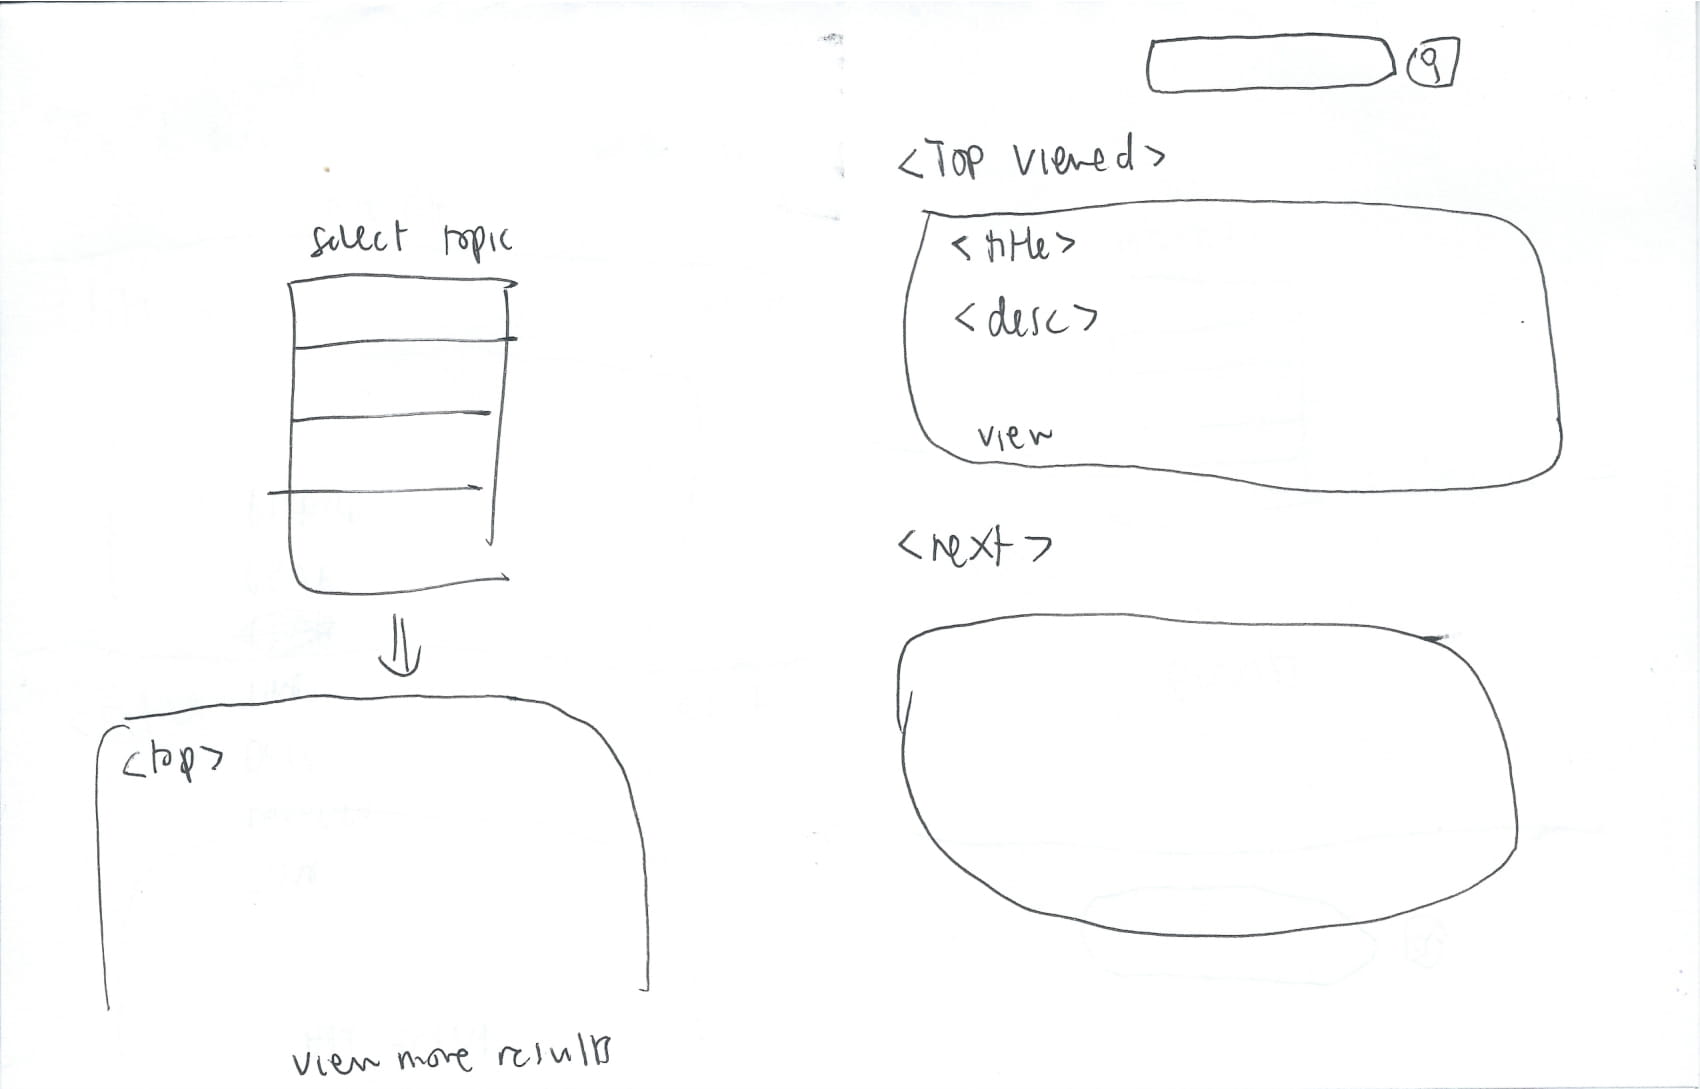 select topic
<top>
view more results
<Top viewed>
<title>
<desc>
view
<next>